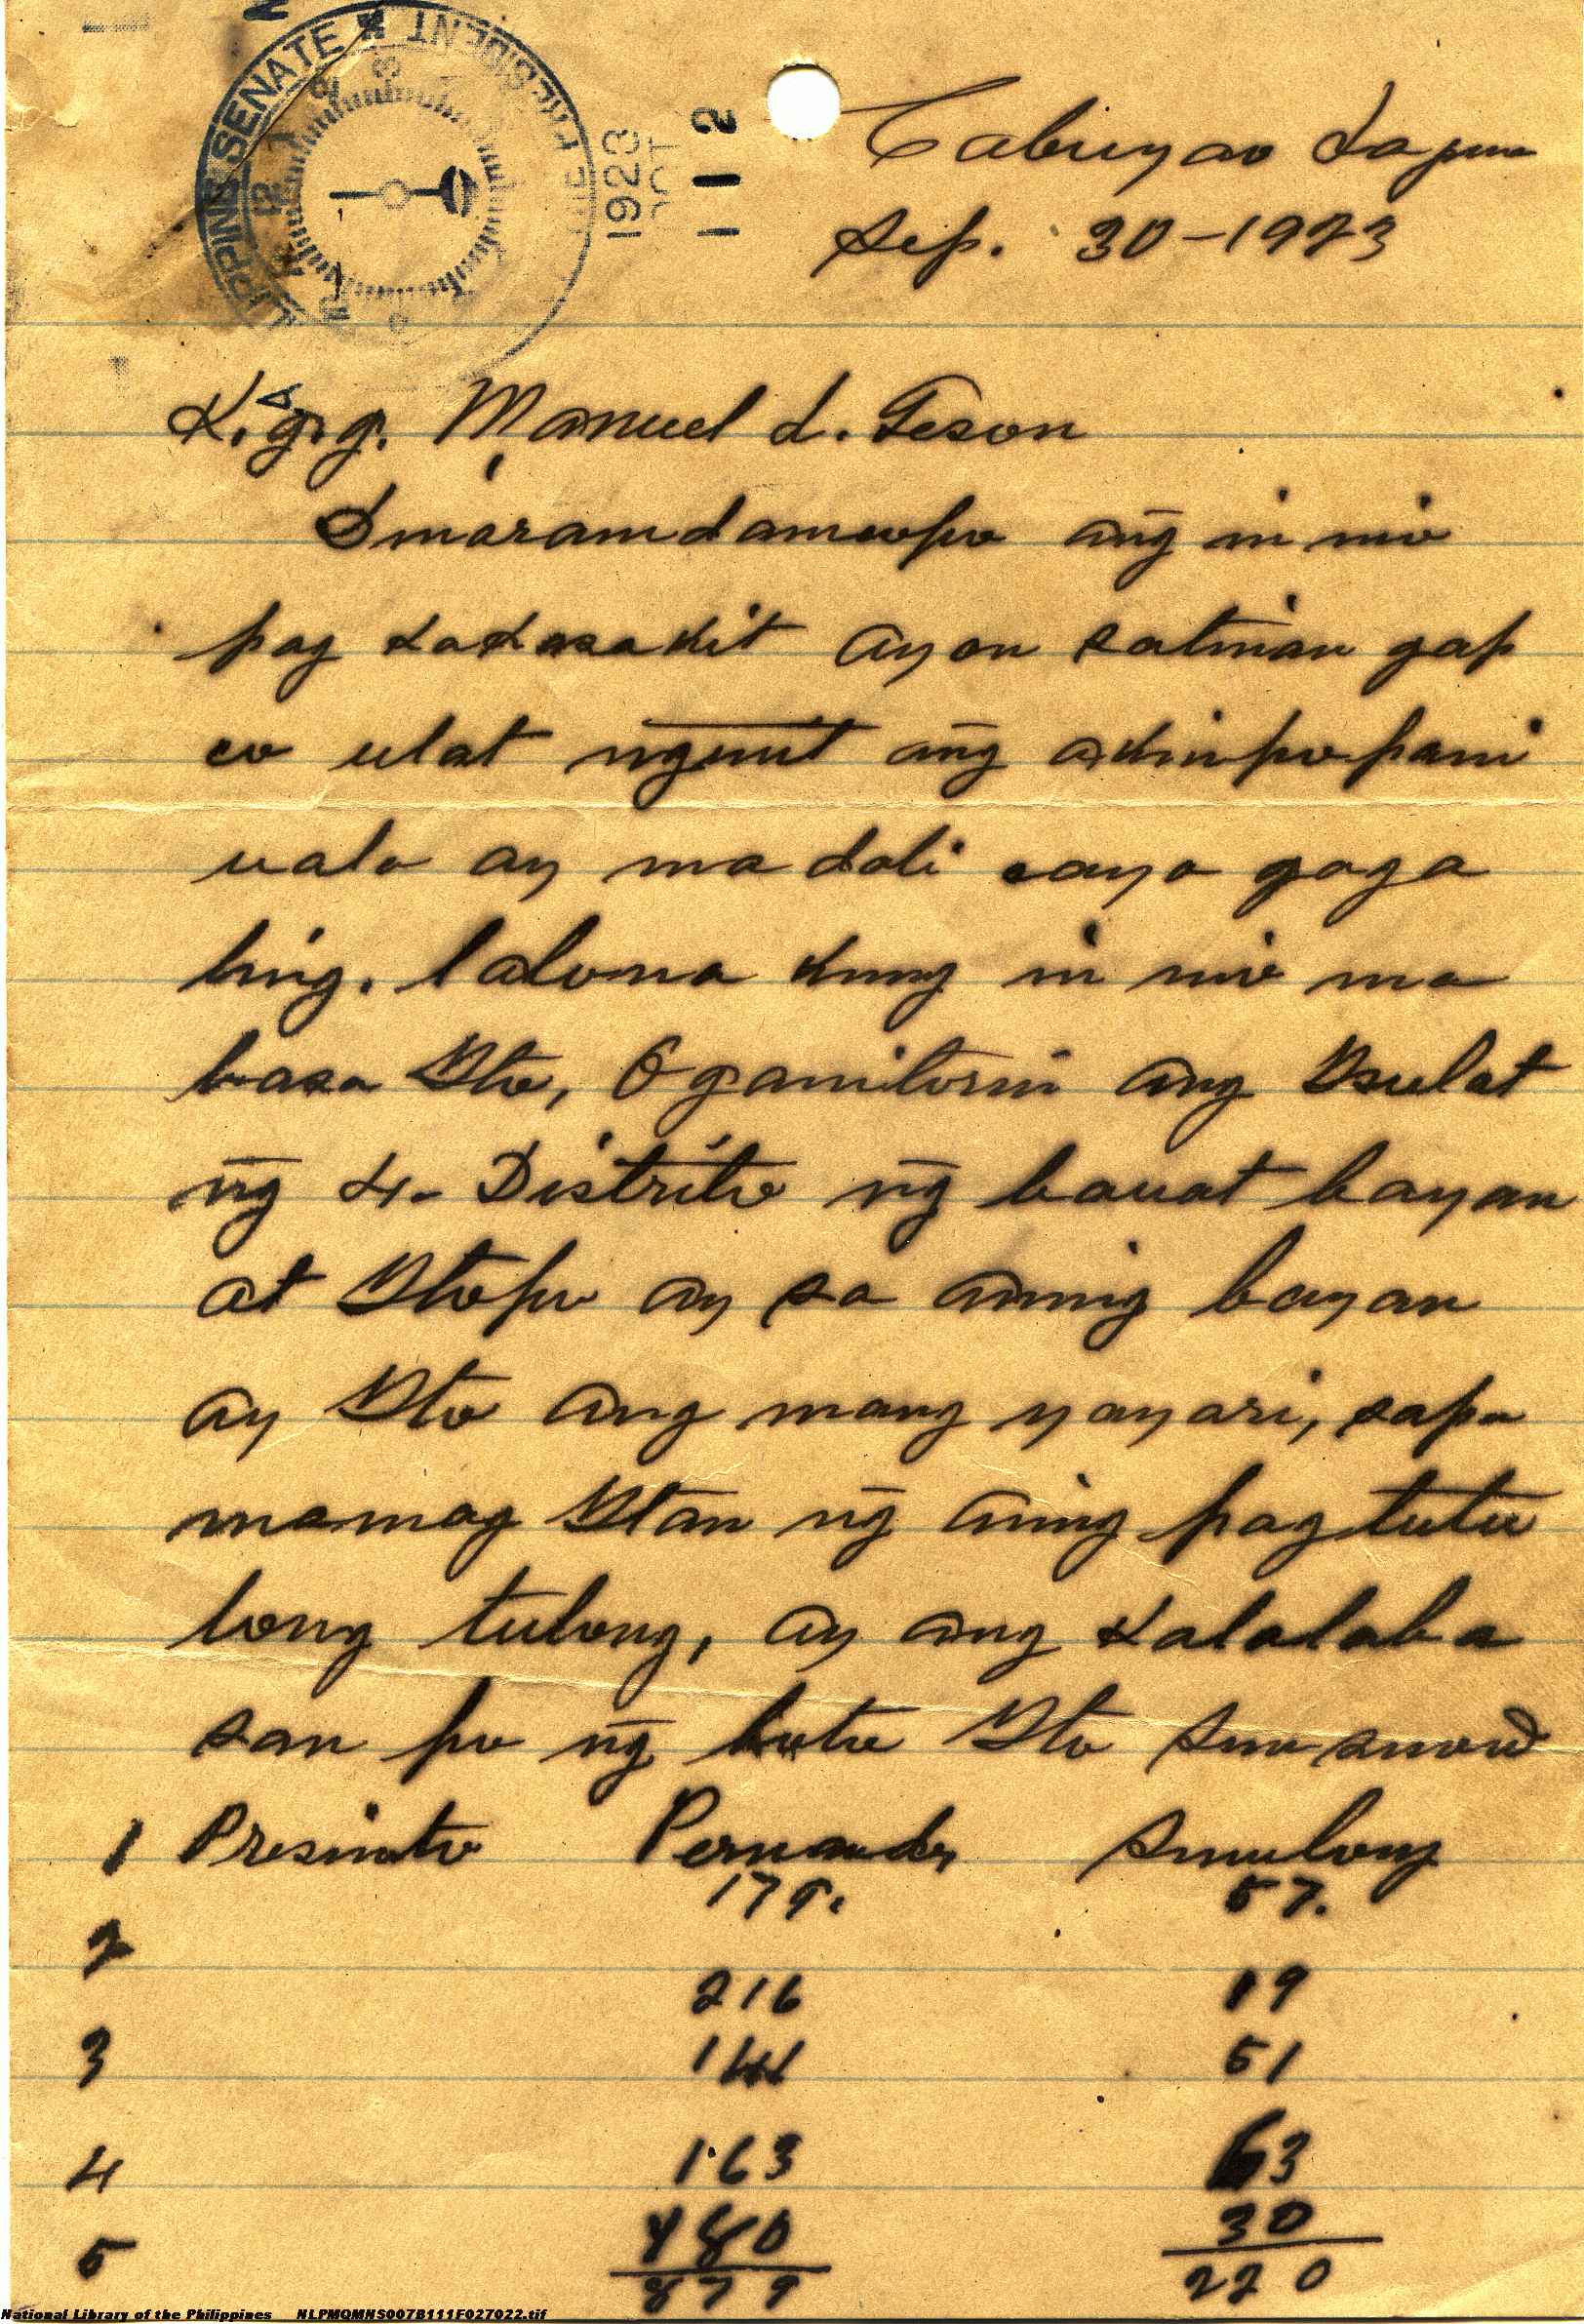 PHILIPPINE SENATE ✱ PRESIDENT
1923
OCT
1 12
Cabuyao Laguna
Sep. 30-1923
K,g,g. Manuel L. Keson
Dinaramdamcopo ang in nio
pag kakasakit ayon satinan gap
co ulat ngunit ang akinpopani
uala ay ma dali cayo gaga
ling. lalona kung in nio ma
basa Ito, O ganitorin ang Isulat
ng 4- Distrito ng bauat bayan
at Itopo ay sa aming bayan
ay Ito ang mang yayari, sapa
mamag Itan ng aming pagtutu
long tulong, ay ang kalalaba
san po ng boto Ito sumusunod
1 Presinto Pernandes Sumulong
179. 57.
2
216 19
3 144 51
163 63
4
180 30
5 879 220
National Library of the Philippines NLPMQMNS007B111F027022.tif